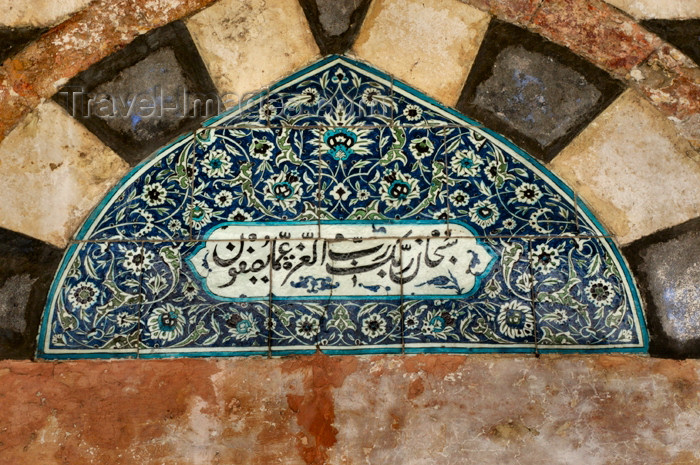 Travel-Images.com
سبحان ربك رب العزة عما يصفون